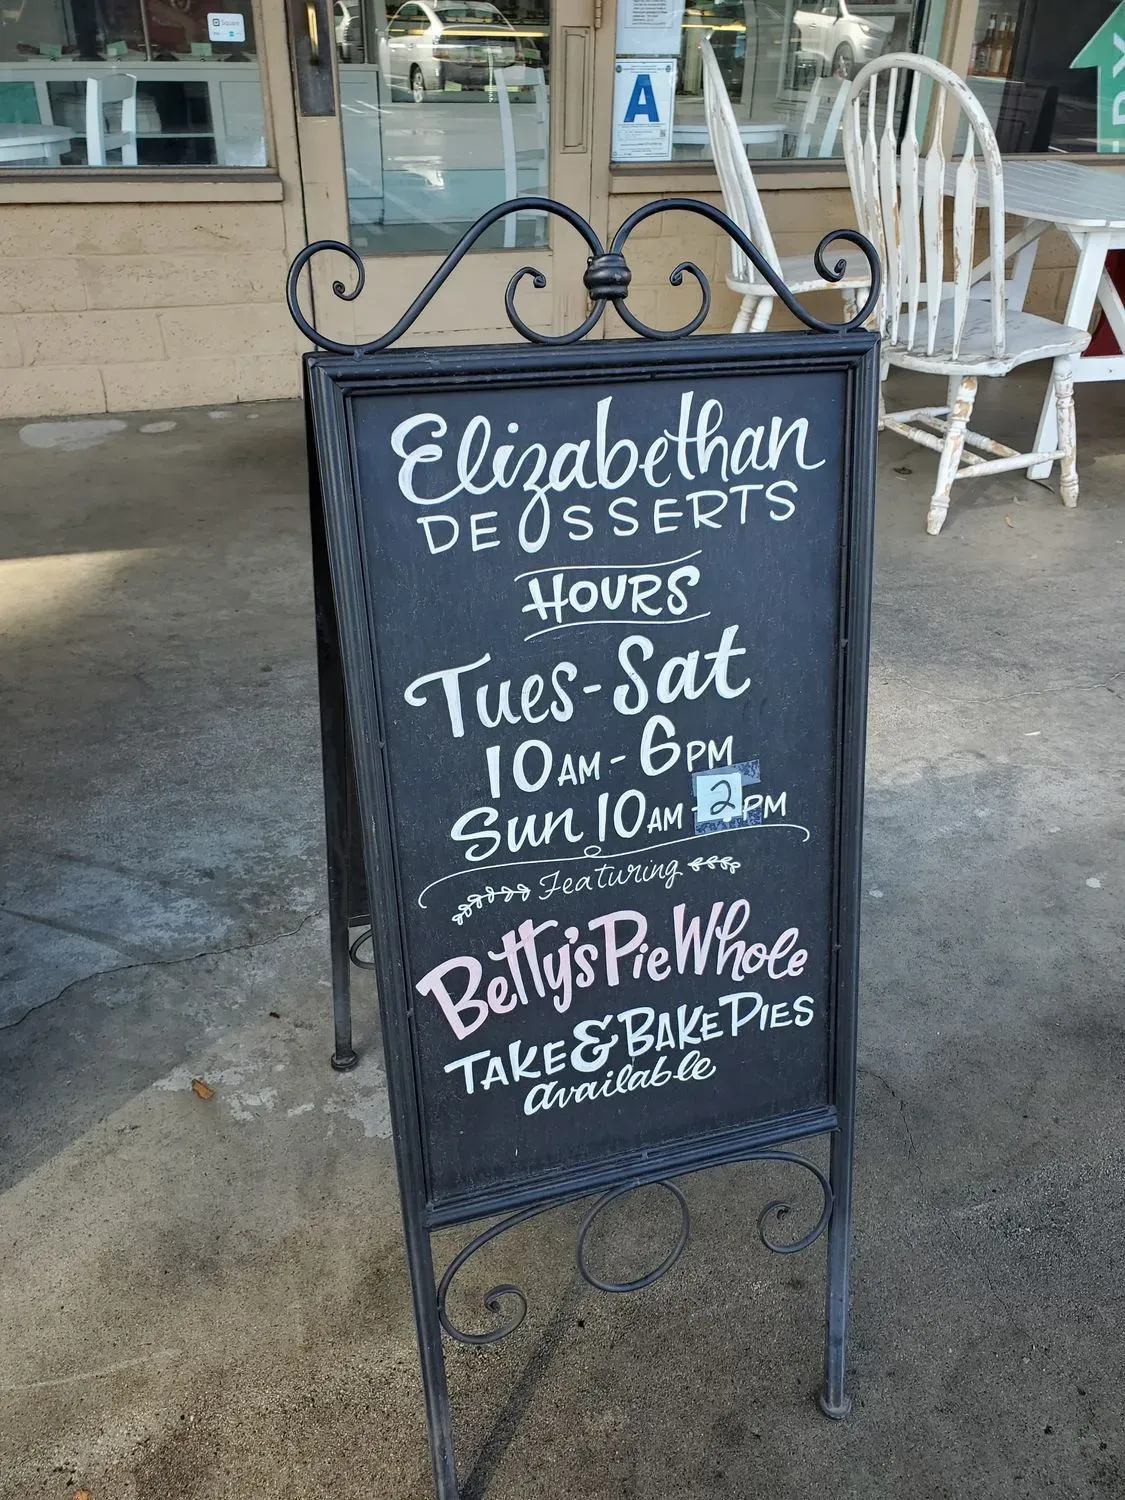 Square
A
Elizabethan
DESSERTS
HOURS
Tues-Sat
10AM-6PM
Sun 10AM-2PM
Featuring
Betty's Pie Whole
TAKE & BAKE PIES
available